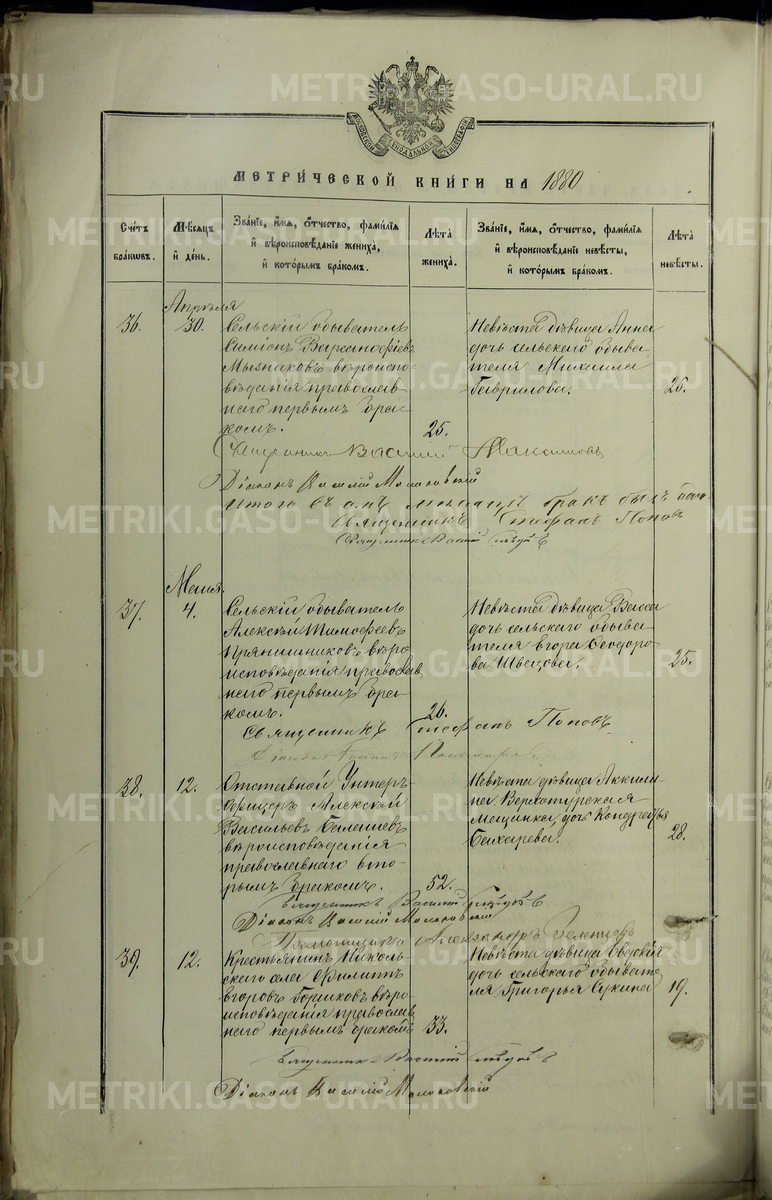 МЕТРИЧЕСКОЙ КНИГИ НА 1880
Счетъ браковъ.
Мѣсяцъ и день.
Званіе, имя, отчество, фамилія и вѣроисповѣданіе жениха, и которымъ бракомъ.
Лѣта жениха.
Званіе, имя, отчество, фамилія и вѣроисповѣданіе невѣсты, и которымъ бракомъ.
Лѣта невѣсты.
Апрѣля
36.
30.
Сельскій обыватель
Симіонъ Варсанофіевъ
Мызниковъ вѣроиспо-
вѣданія православ-
наго первымъ бра-
комъ.
25.
Невѣста дѣвица Анна
дочь сельскаго обыва-
теля Михаила
Гаврилова.
25.
Священникъ Василій Максимовъ
Діаконъ Василій
Итого въ мѣсяцѣ бракъ былъ
Священникъ Стефанъ Поповъ
Священникъ Василій
Маія
37.
4.
Сельскій обыватель
Алексѣй Тимофеевъ
Прянишниковъ вѣро-
исповѣданія православ
наго первымъ бра-
комъ.
26.
Невѣста дѣвица Васса
дочь сельскаго обыва-
теля Егора Ѳеодоро-
ва Швецова.
25.
Священникъ Стефанъ Поповъ
38.
12.
Отставной Унтеръ
Офицеръ Алексѣй
Васильевъ
вѣроисповѣданія
православнаго вто-
рымъ бракомъ.
52.
Невѣста дѣвица Аккили-
на Верхотурская
Мещанка, дочь Кондратья
Сахарева.
28.
Священникъ Василій
Діаконъ Василій
Псаломщикъ Александръ
39.
12.
Крестьянинъ Николь-
скаго села Филиппъ
Егоровъ Горшковъ вѣро-
исповѣданія православ
наго первымъ бракомъ
33.
Невѣста дѣвица Евдокія
дочь сельскаго обывате-
ля Григорья Сукина
19.
Священникъ Василій
Діаконъ Василій
METRIKI.GASO-URAL.RU